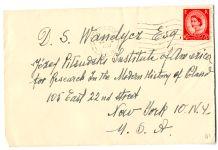 D. S. Wandycz Esq.
Józef Piłsudski Institute of America
for Research in the Modern History of Poland
105 East 22nd street
New York 10. N.Y.
U. S. A.